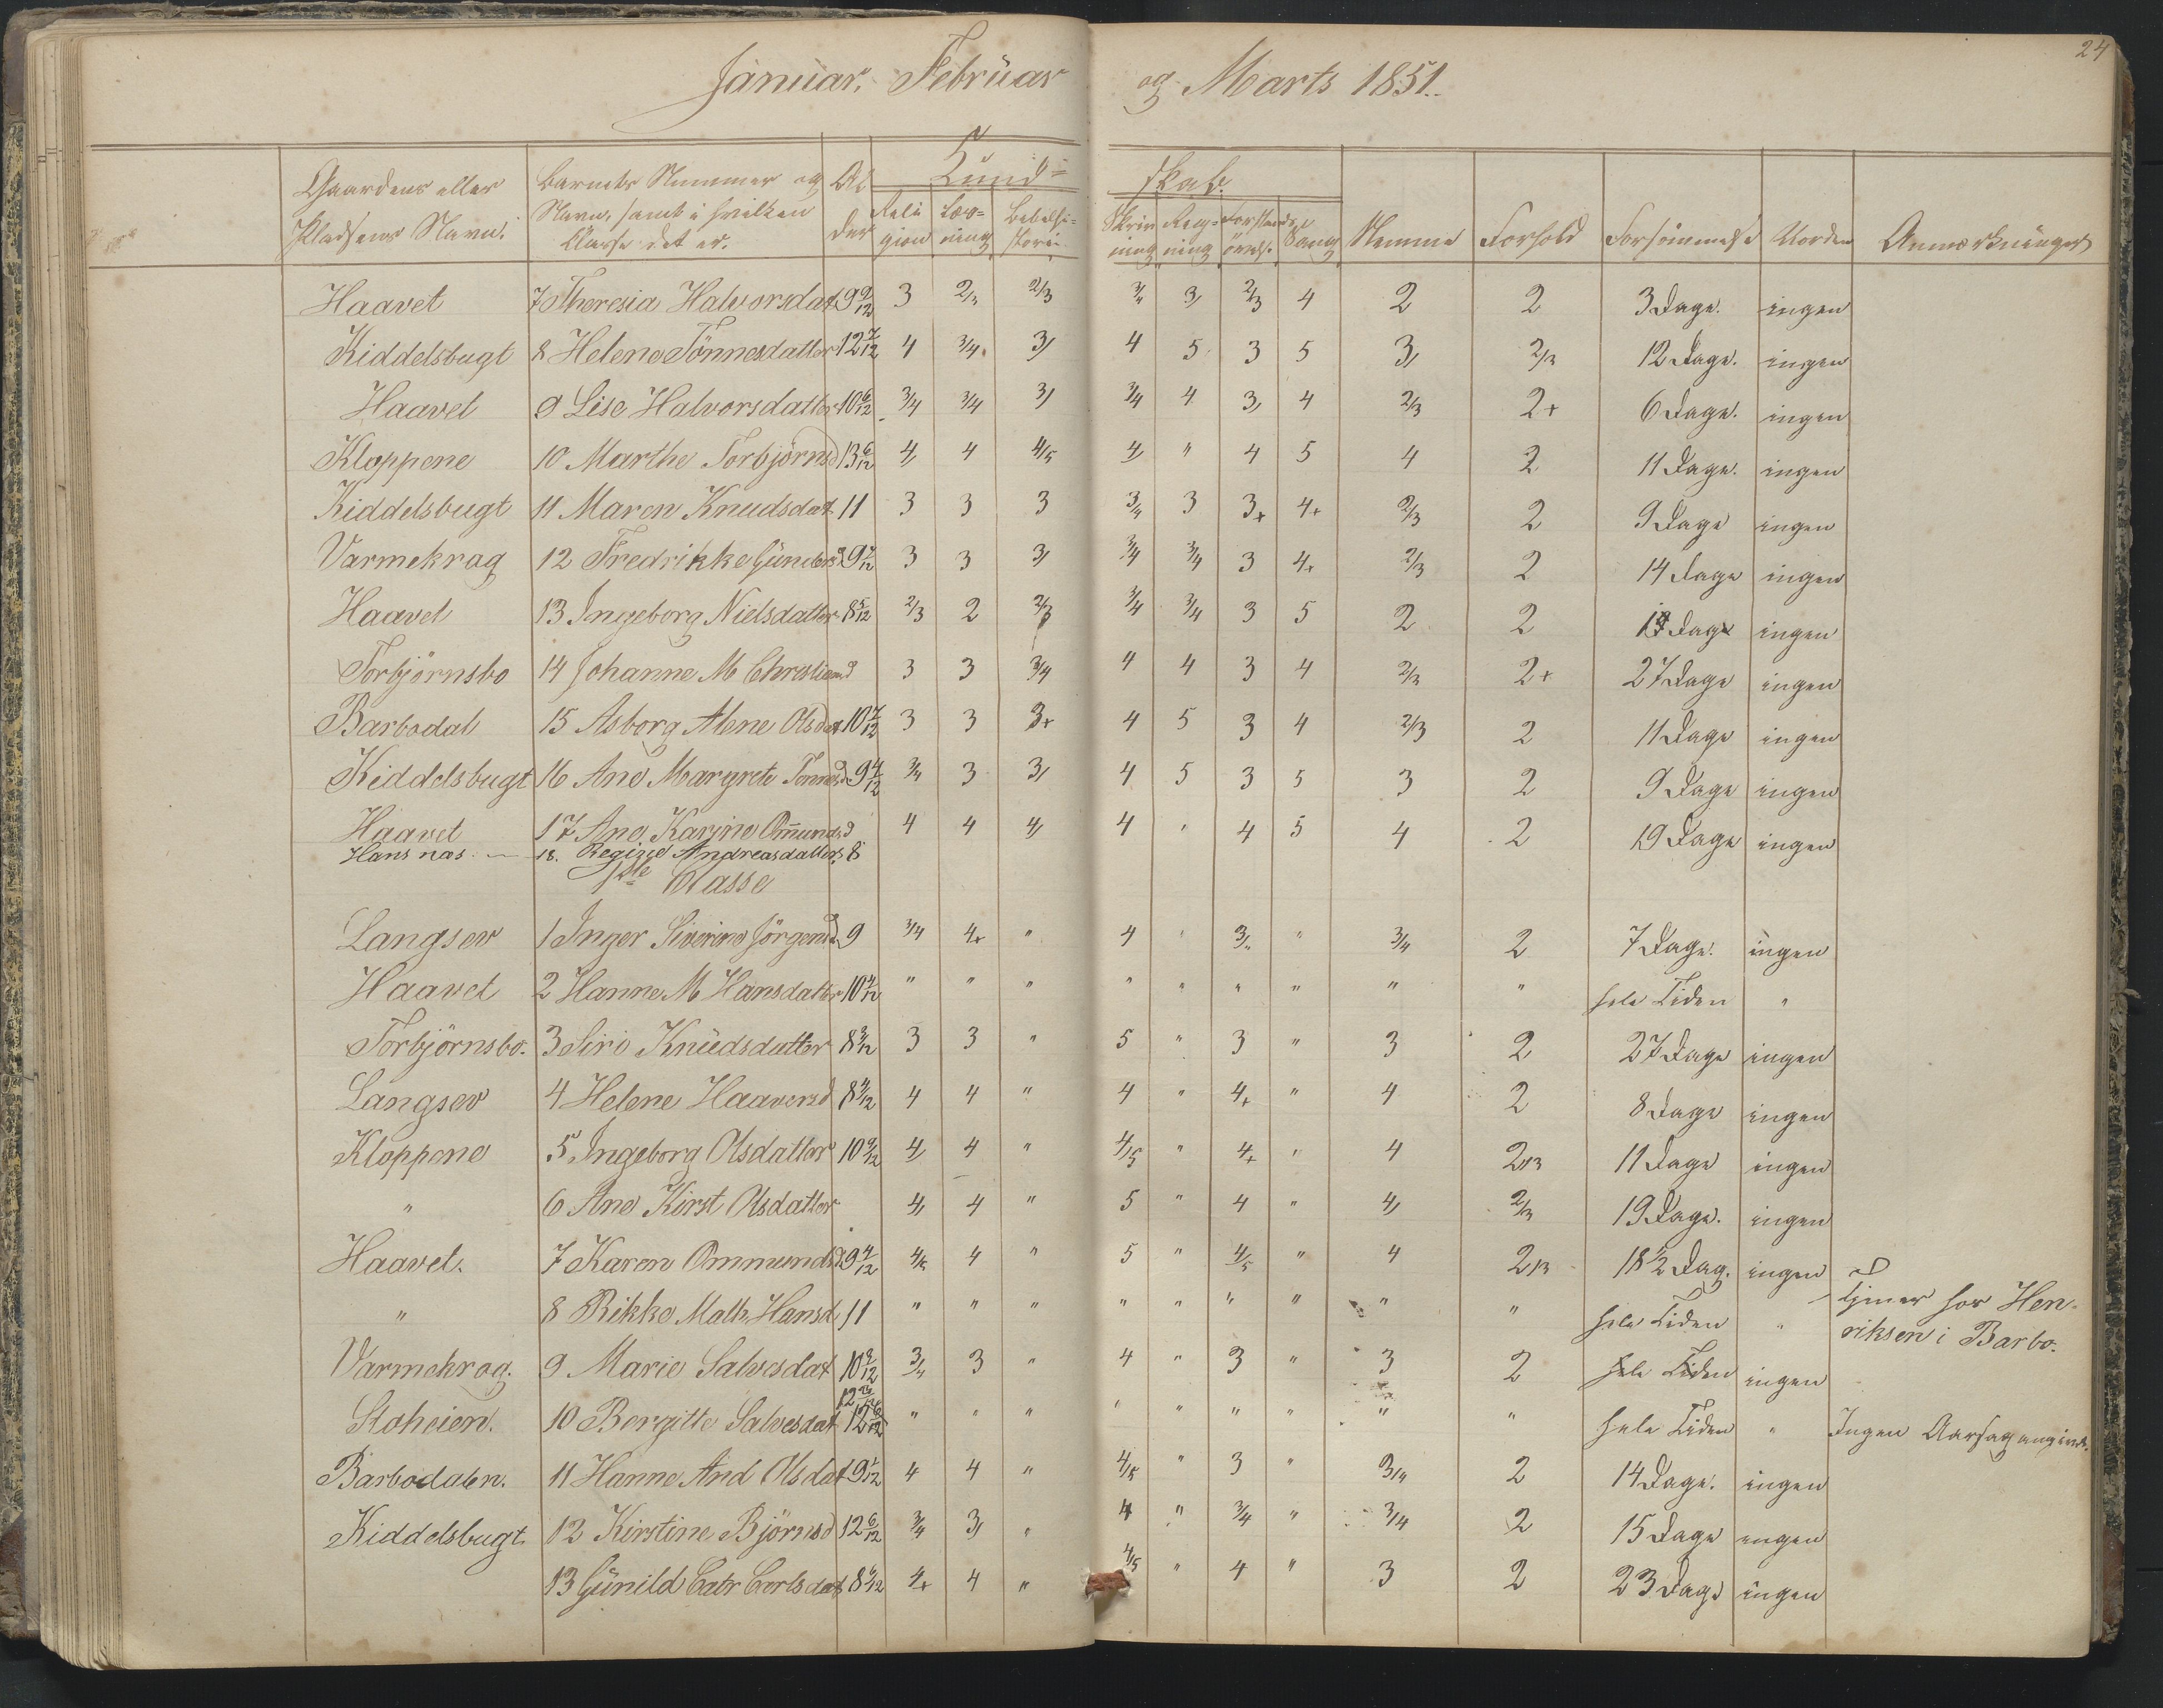 24
Januar, Februar og Marts 1851.
Gaardens eller Pladsens Navn. Barnets Nummer og Navn, samt i hvilken Classe det er. Alder Kundskab. Religion Læsning Bibelhistorie Skrivning Regning Forstandsövels. Sang Nemme Forhold Forsömmelse Uorden Anmærkninger
Haavet 7 Theresia Halvorsdat 9 9/12 3 2/3 2/3 3/4 3/ 2/3 4 2 2 3 Dage. ingen
Kiddelsbugt 8 Helene Tönnesdatter 12 7/12 4 3/4 3/ 4 5 3 5 3/ 2/3 12 Dage. ingen
Haavet 9 Lise Halvorsdatter 10 6/12 3/4 3/4 3/ 3/4 4 3/ 4 2/3 2+ 6 Dage. ingen
Kloppene 10 Marthe Torbjörnsd 13 6/12 4/ 4 4/5 4/ " 4 5 4 2 11 Dage. ingen
Kiddelsbugt 11 Maren Knudsdat 11 3 3 3 3/4 3 3+ 4+ 2/3 2 9 Dage ingen
Varmekrog 12 Fredrikke Gunders d 9 7/12 3 3 3/ 3/4 3/4 3 4+ 2/3 2 14 Dage ingen
Haavet 13 Ingeborg Nielsdatter 8 5/12 2/3 2 2/3 3/4 3/4 3 5 2 2 Dage ingen
Torbjörnsbo 14 Johanne M Christiansd 3 3 3/4 4 4 3 4 2/3 2+ 27 Dage ingen
Barbodal 15 Asborg Alene Olsdat 10 7/12 3 3 3+ 4 5 3 4 2/3 2 11 Dage ingen
Kiddelsbugt 16 Ane Margrete Tönnesd 9 4/12 3/4 3 3/ 4 5 3 5 3 2 9 Dage ingen
Haavet 17 Ane Karine Ommunds d 4 4 4/ 4 " 4 5 4 2 19 Dage ingen
Hans nas. — 18. Regine Andreasdatter 8
1ste Klasse
Langsev 1 Inger Siverine Jörgensd 9 3/4 4+ " 4 " 3/4 " 3/4 2 7 Dage. ingen
Haavet 2 Hanne M Hansdatter 10 7/12 " " " " " " " " " hele Tiden "
Torbjörnsbo. 3 Siri Knudsdatter 8 3/12 3 3 " 5 " 3 " 3 2 27 Dage ingen
Langsev 4 Helene Haaversd 8 4/12 4 4 " 4 " 4+ " 4 2 8 Dage ingen
Kloppene 5 Ingeborg Olsdatter 10 9/12 4/ 4 " 4/5 " 4+ " 4 2/3 11 Dage ingen
" 6 Ane Kirst Olsdatter 4/ 4 " 5 " 4 " 4/ 2/3 19 Dage. ingen
Haavet. 7 Karen Ommundsd 9 4/12 4/5 4 " 5 " 4/5 " 4 2/3 18 1/2 Dag. ingen
" 8 Rikke Math. Hansd 11 " " " " " " " " " hele Tiden " Tjener hos Henriksen i Barbo.
Varmekrog. 9 Marie Salvesdat 10 9/12 3/4 3 " 4 " 3 " 3 2 hele Tiden ingen
Stoheien. 10 Bergitte Salvesdat 12 6/12 " " " " " " " " " hele Tiden " Ingen Aarsag angivet.
Barbodalen. 11 Hanne And Olsdat 9 1/12 4 4 " 4/5 " 3 " 3/4 2 14 Dage. ingen
Kiddelsbugt. 12 Kirstine Björnsd 12 6/12 3/4 3/ " 4 " 3/4 " 3/4 2 15 Dage ingen
13 Gunild Catr Carlsdat 8 4/12 4+ 4 " 4/5 " 4 " 3 2 23 Dage ingen